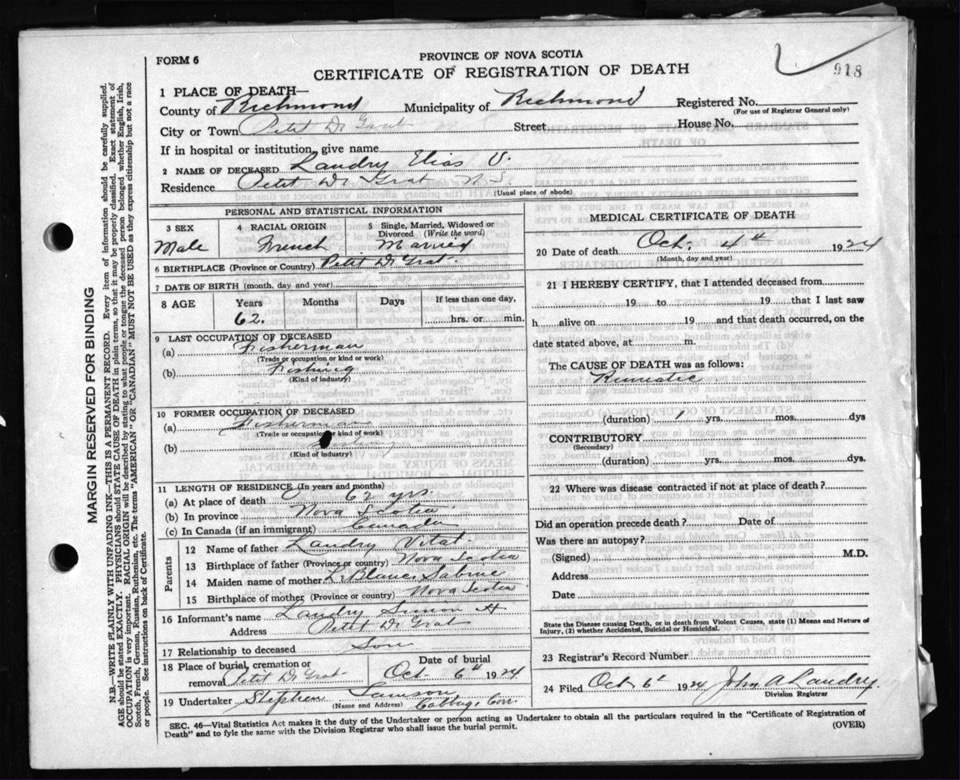 FORM 6
PROVINCE OF NOVA SCOTIA
CERTIFICATE OF REGISTRATION OF DEATH
918
1 PLACE OF DEATH—
County of Richmond Municipality of Richmond Registered No.
(For use of Registrar General only)
City or Town Petit De Grat Street House No.
If in hospital or institution, give name
2 NAME OF DECEASED Landry Elias V.
Residence Petit De Grat N.S.
(Usual place of abode)
PERSONAL AND STATISTICAL INFORMATION
3 SEX 4 RACIAL ORIGIN 5 Single, Married, Widowed or Divorced (Write the word)
Male French Married
6 BIRTHPLACE (Province or Country) Petit De Grat.
7 DATE OF BIRTH (month, day and year)
8 AGE Years Months Days If less than one day,
62. hrs. or min.
9 LAST OCCUPATION OF DECEASED
(a) Fisherman
(Trade or occupation or kind or work)
(b) Fishing
(Kind of industry)
10 FORMER OCCUPATION OF DECEASED
(a) Fisherman
(Trade or occupation or kind of work)
(b)
(Kind of industry)
11 LENGTH OF RESIDENCE (In years and months)
(a) At place of death 62 yrs
(b) In province Nova Scotia
(c) In Canada (if an immigrant) Canada
Parents
12 Name of father Landry Vital
13 Birthplace of father (Province or country) Nova Scotia
14 Maiden name of mother LeBlanc Sabine
15 Birthplace of mother (Province or country) Nova Scotia
16 Informant's name Landry Simon H
Address Petit De Grat
17 Relationship to deceased Son
18 Place of burial, cremation or removal Petit De Grat Date of burial Oct. 6th 1924
19 Undertaker Stephen Samson
(Name and Address) Cabbage Cove
MEDICAL CERTIFICATE OF DEATH
20 Date of death Oct. 4th 1924
(Month, day and year)
21 I HEREBY CERTIFY, that I attended deceased from
19 to 19 that I last saw
h alive on 19 and that death occurred, on the
date stated above, at m.
The CAUSE OF DEATH was as follows:
Rumatic
(duration) 1 yrs. mos. dys
CONTRIBUTORY
(Secondary)
(duration) yrs. mos. dys.
22 Where was disease contracted if not at place of death?
Did an operation precede death? Date of
Was there an autopsy?
(Signed) M.D.
Address
Date
State the Disease causing Death, or in death from Violent Causes, state (1) Means and Nature of
Injury, (2) whether Accidental, Suicidal or Homicidal.
23 Registrar's Record Number
24 Filed Oct 6th 1924 John A Landry.
Division Registrar
SEC. 46—Vital Statistics Act makes it the duty of the Undertaker or person acting as Undertaker to obtain all the particulars required in the "Certificate of Registration of
Death" and to fyle the same with the Division Registrar who shall issue the burial permit.
(OVER)
MARGIN RESERVED FOR BINDING
N.B.—WRITE PLAINLY WITH UNFADING INK—THIS IS A PERMANENT RECORD. Every item of information should be carefully supplied.
AGE should be stated EXACTLY. PHYSICIANS should STATE CAUSE OF DEATH in plain terms, so that it may be properly classified. Exact statement of
OCCUPATION is very important. RACIAL ORIGIN will be described by stating to what people or tongue the deceased person belonged whether English, Irish,
Scotch, French, German, Russian, Ruthenian, etc. The terms "AMERICAN" OR "CANADIAN" MUST NOT BE USED as they express citizenship but not a race
or people. See instructions on back of Certificate.